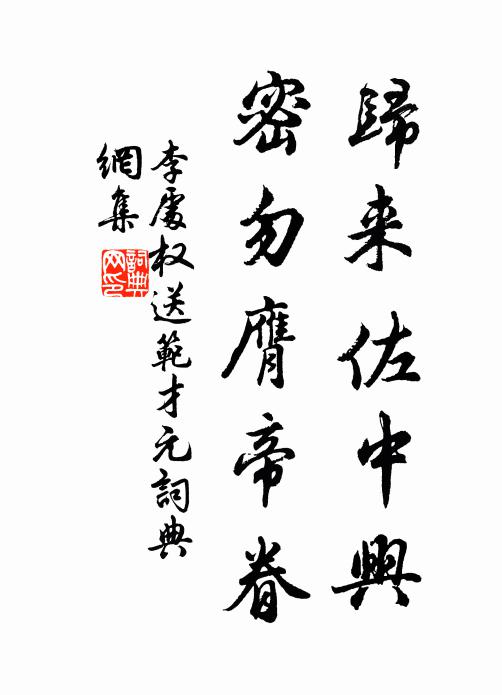 歸来佐中興
密勿膺帝眷
李處权送範才元詞典
網集
詞典
网印